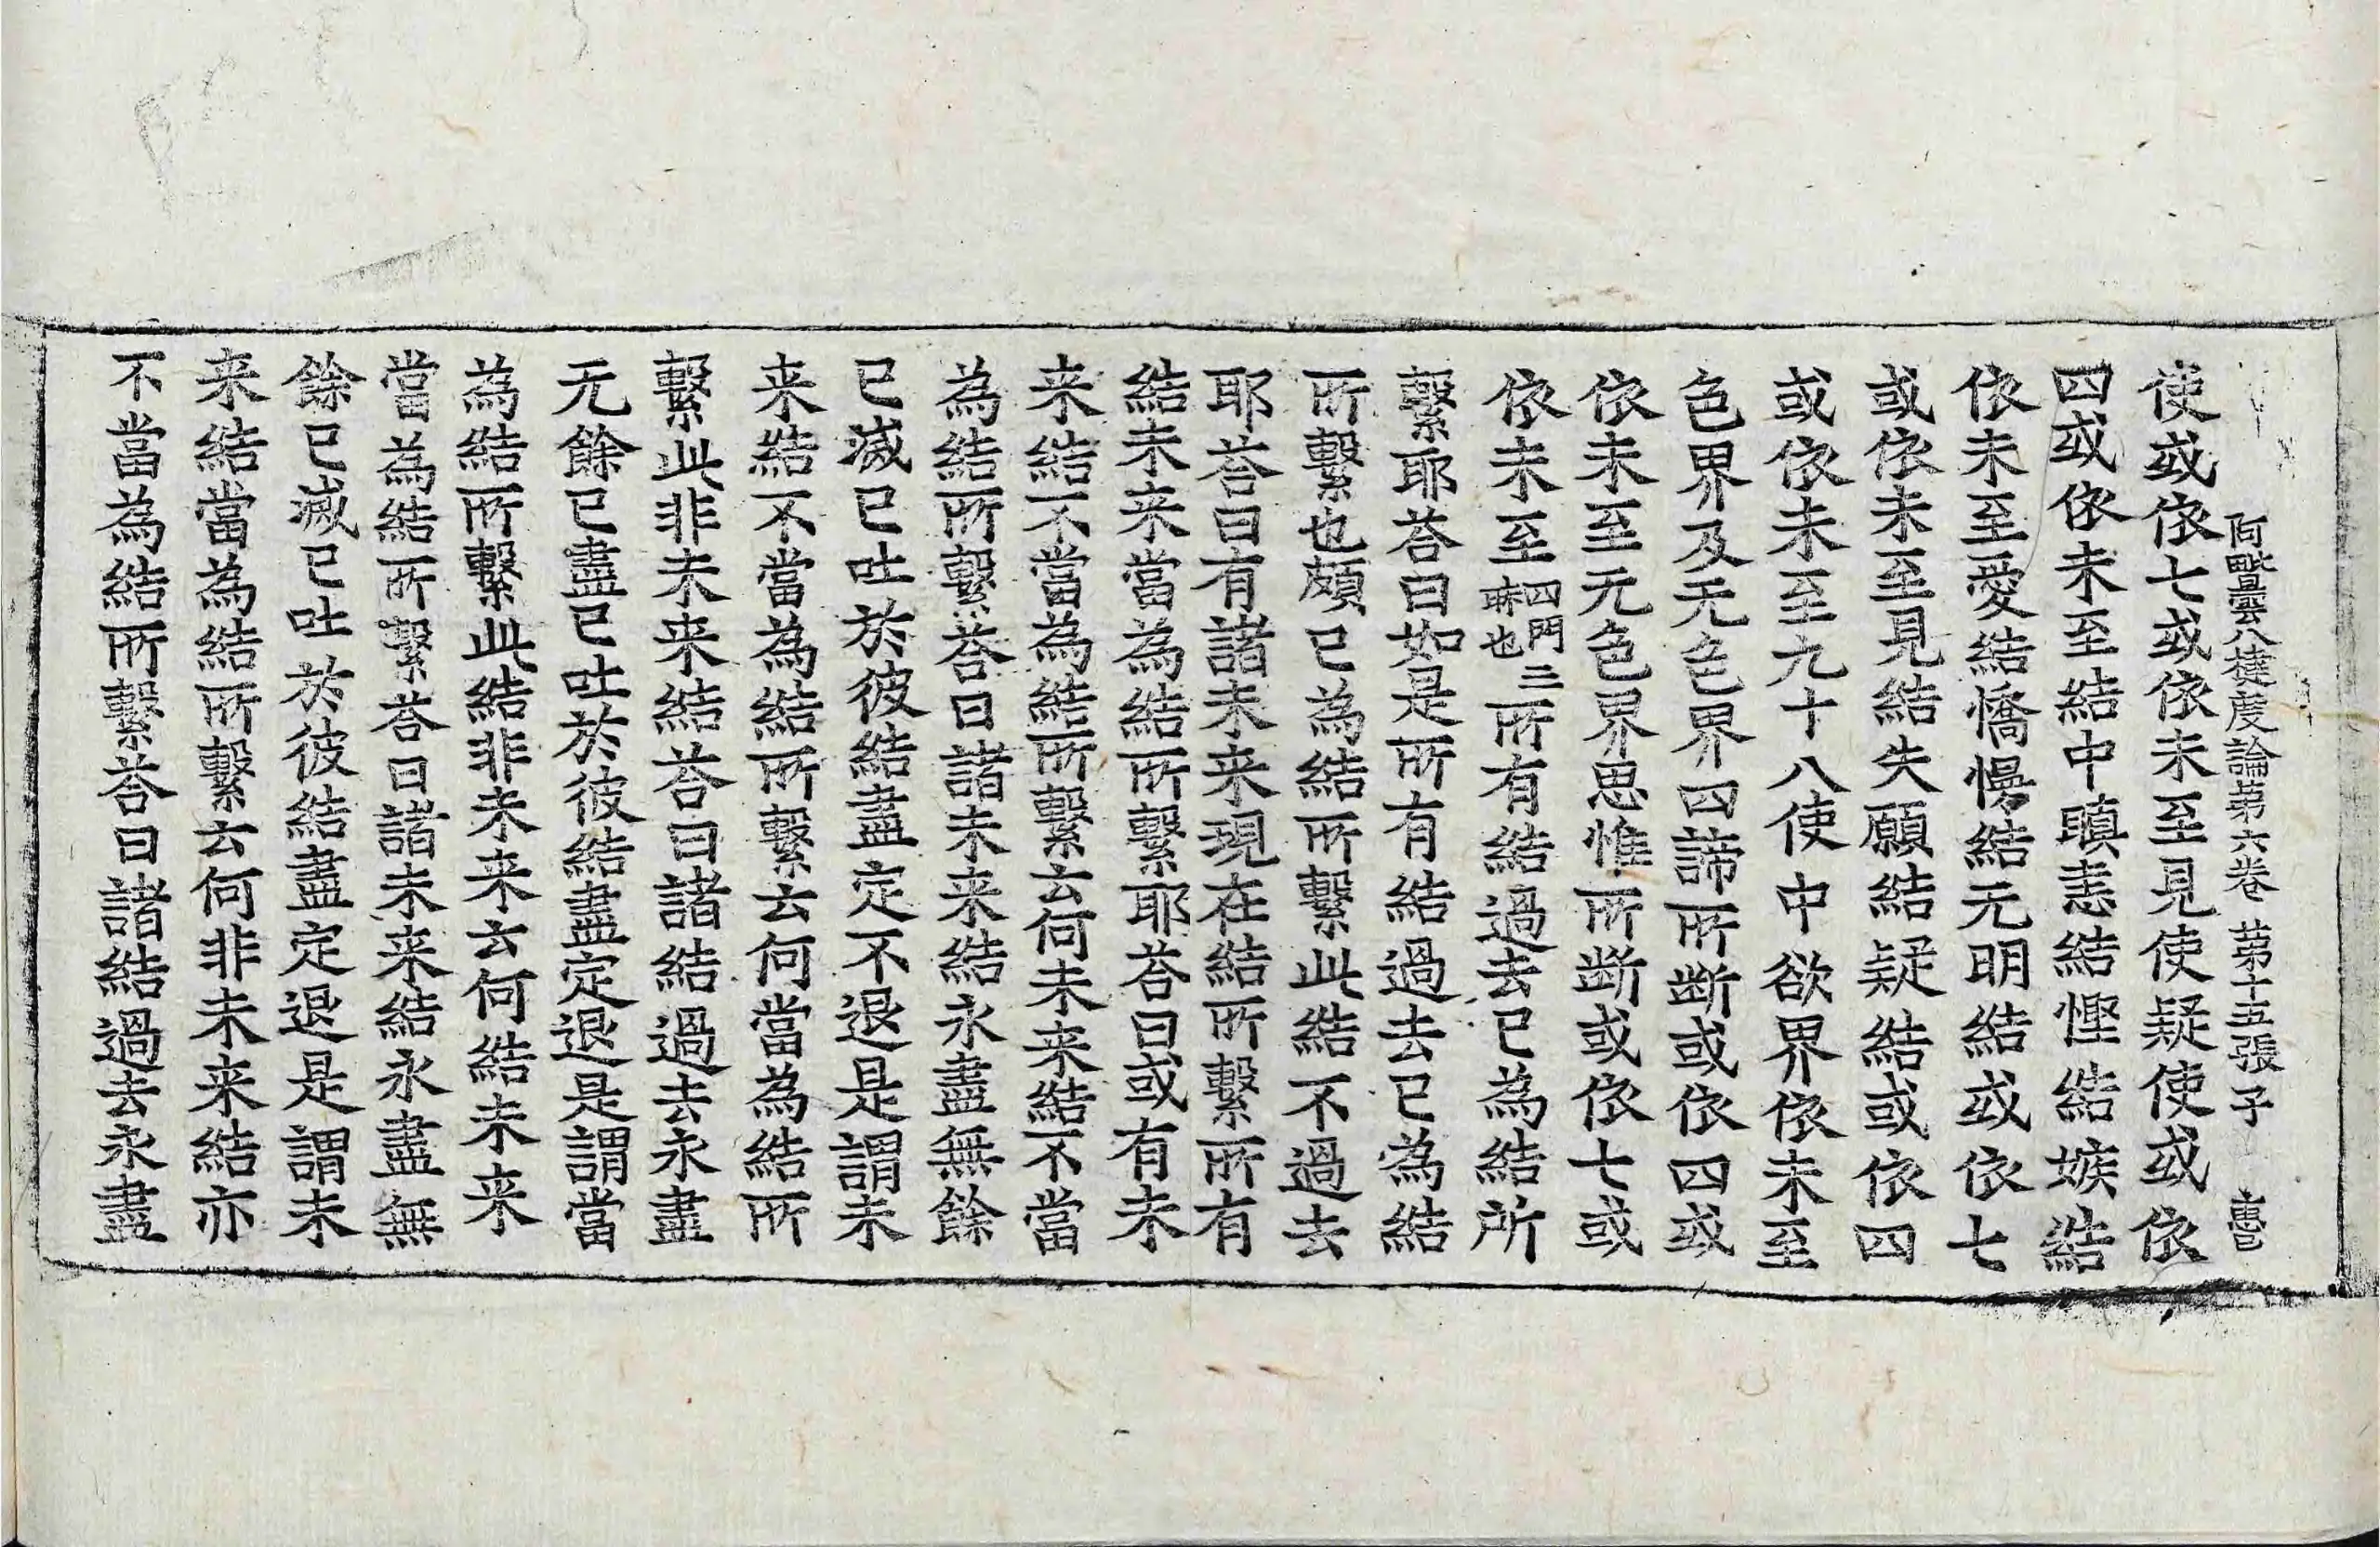 阿毗曇八揵度論第六卷 第十五張 子
使或依七或依未至見使疑使或依
四或依未至結中瞋恚結慳結嫉結
依未至愛結憍慢結无明結或依七
或依未至見結失願結疑結或依四
或依未至九十八使中欲界依未至
色界及无色界四諦所斷或依四或
依未至无色界思惟所斷或依七或
依未至四門三竟也所有結過去已為結所
繫耶荅曰如是所有結過去已為結
所繫也頗已為結所繫此結不過去
耶荅曰有諸未来現在結所繫所有
結未来當為結所繫耶荅曰或有未
来結不當為結所繫云何未来結不當
為結所繫荅曰諸未来結永盡無餘
已滅已吐於彼結盡定不退是謂未
来結不當為結所繫云何當為結所
繫此非未来結荅曰諸結過去永盡
无餘已盡已吐於彼結盡定退是謂當
為結所繫此結非未来云何結未来
當為結所繫荅曰諸未来結永盡無
餘已滅已吐於彼結盡定退是謂未
来結當為結所繫云何非未来結亦
不當為結所繫荅曰諸結過去永盡